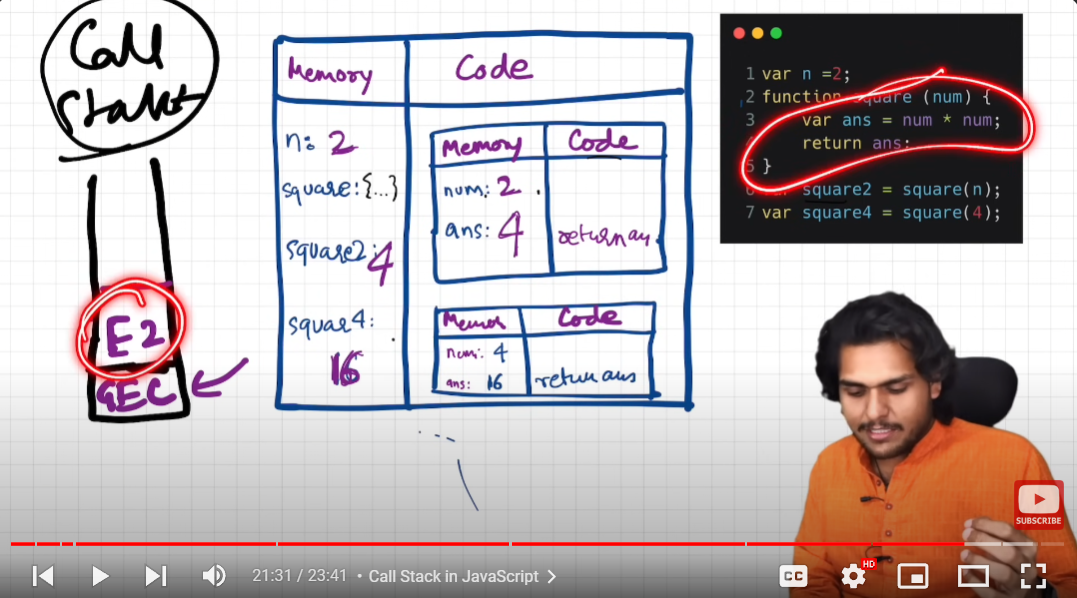 Call
Stakt
E2
GEC
Memory
Code
n: 2
square: {...}
square2: 4
squae4:
16
Memory
Code
num: 2
ans: 4
return an
Memor
Code
num: 4
ans: 16
return ans
1 var n =2;
2 function square (num) {
3 var ans = num * num;
return ans;
5 }
6 var square2 = square(n);
7 var square4 = square(4);
SUBSCRIBE
21:31 / 23:41 • Call Stack in JavaScript
CC
HD